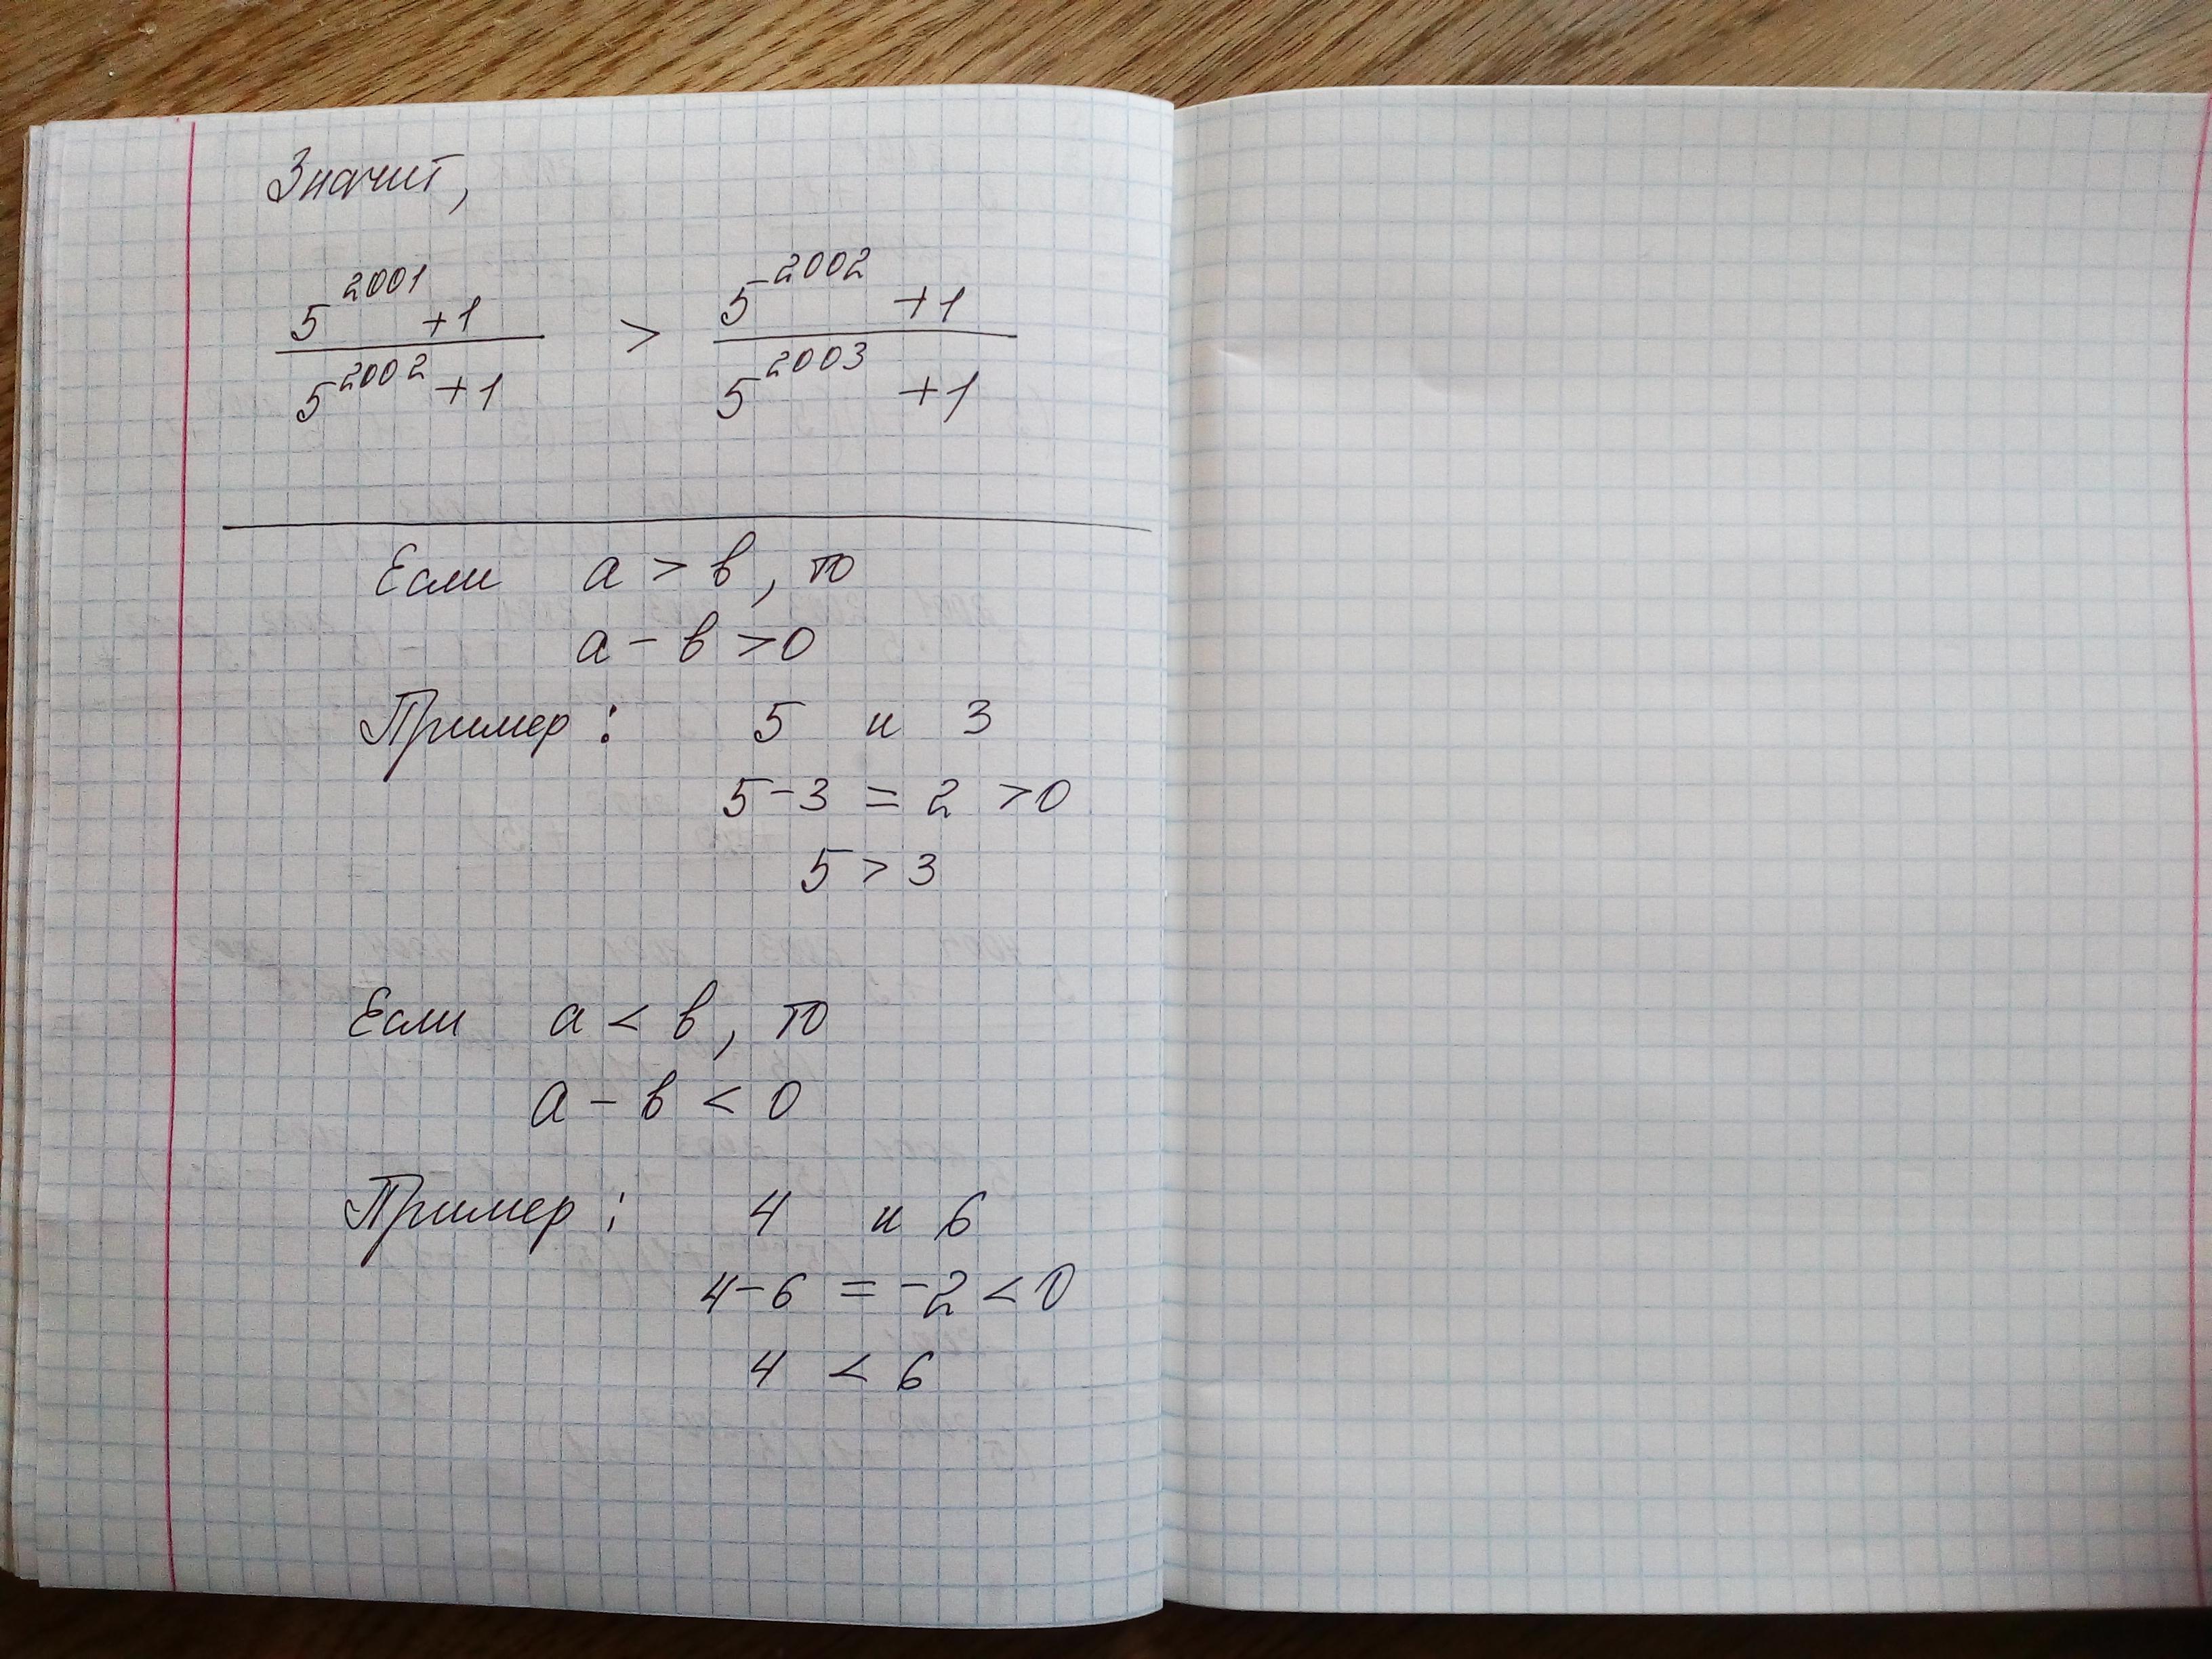 Значит,
5^2001 +1 / 5^2002 +1 > 5^2002 +1 / 5^2003 +1
Если a > в, то
a - в > 0
Пример: 5 и 3
5 - 3 = 2 > 0
5 > 3
Если a < в, то
a - в < 0
Пример: 4 и 6
4 - 6 = -2 < 0
4 < 6